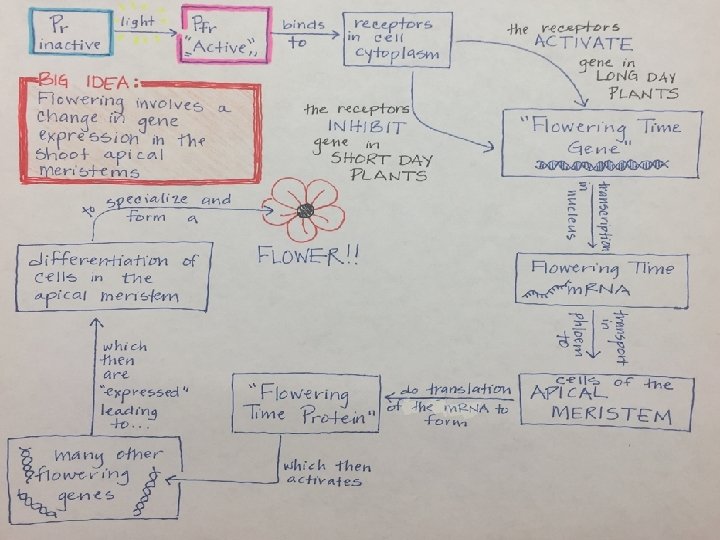 Pr
inactive
light
Pfr
"Active"
binds
to
receptors
in cell
cytoplasm
the receptors
ACTIVATE
gene in
LONG DAY
PLANTS
BIG IDEA:
Flowering involves a
change in gene
expression in the
shoot apical
meristems
the receptors
INHIBIT
gene in
SHORT DAY
PLANTS
"Flowering Time
Gene"
transcription
in
nucleus
Flowering Time
mRNA
transport
in
phloem
to
cells of the
APICAL
MERISTEM
do translation
of the mRNA to
form
"Flowering
Time Protein"
which then
activates
many other
flowering
genes
which
then
are
"expressed"
leading
to...
differentiation of
cells in the
apical meristem
to specialize and
form a
FLOWER!!